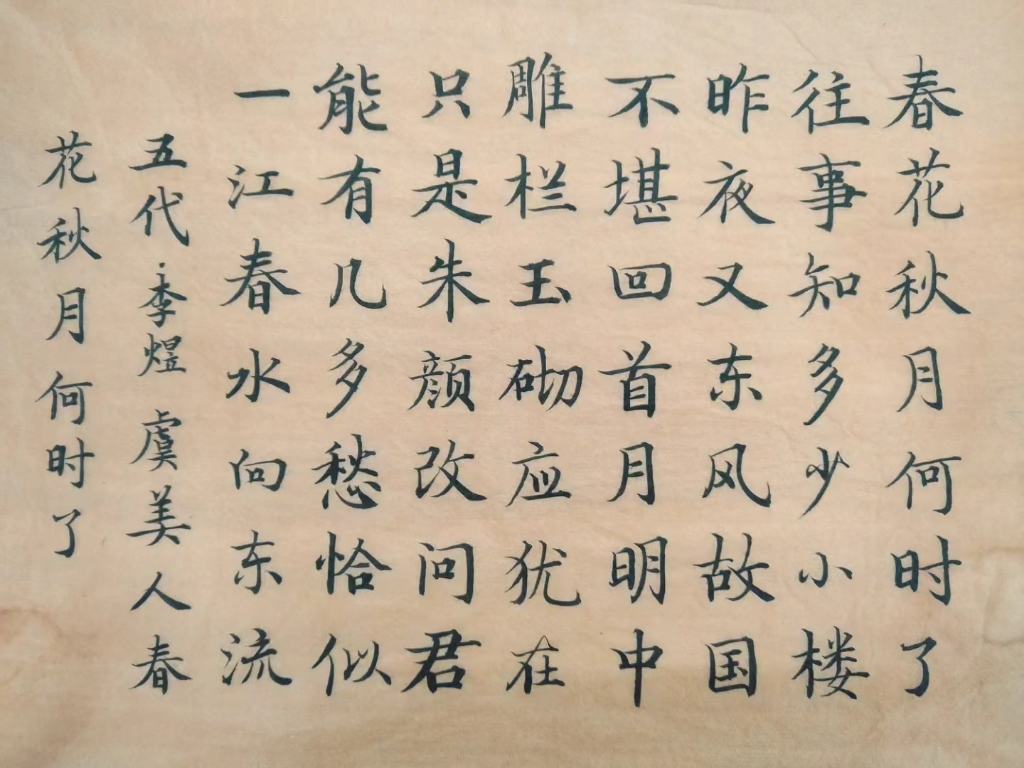 春花秋月何时了
往事知多少小楼
昨夜又东风故国
不堪回首月明中
雕栏玉砌应犹在
只是朱颜改问君
能有几多愁恰似
一江春水向东流
五代·李煜 虞美人春
花秋月何时了